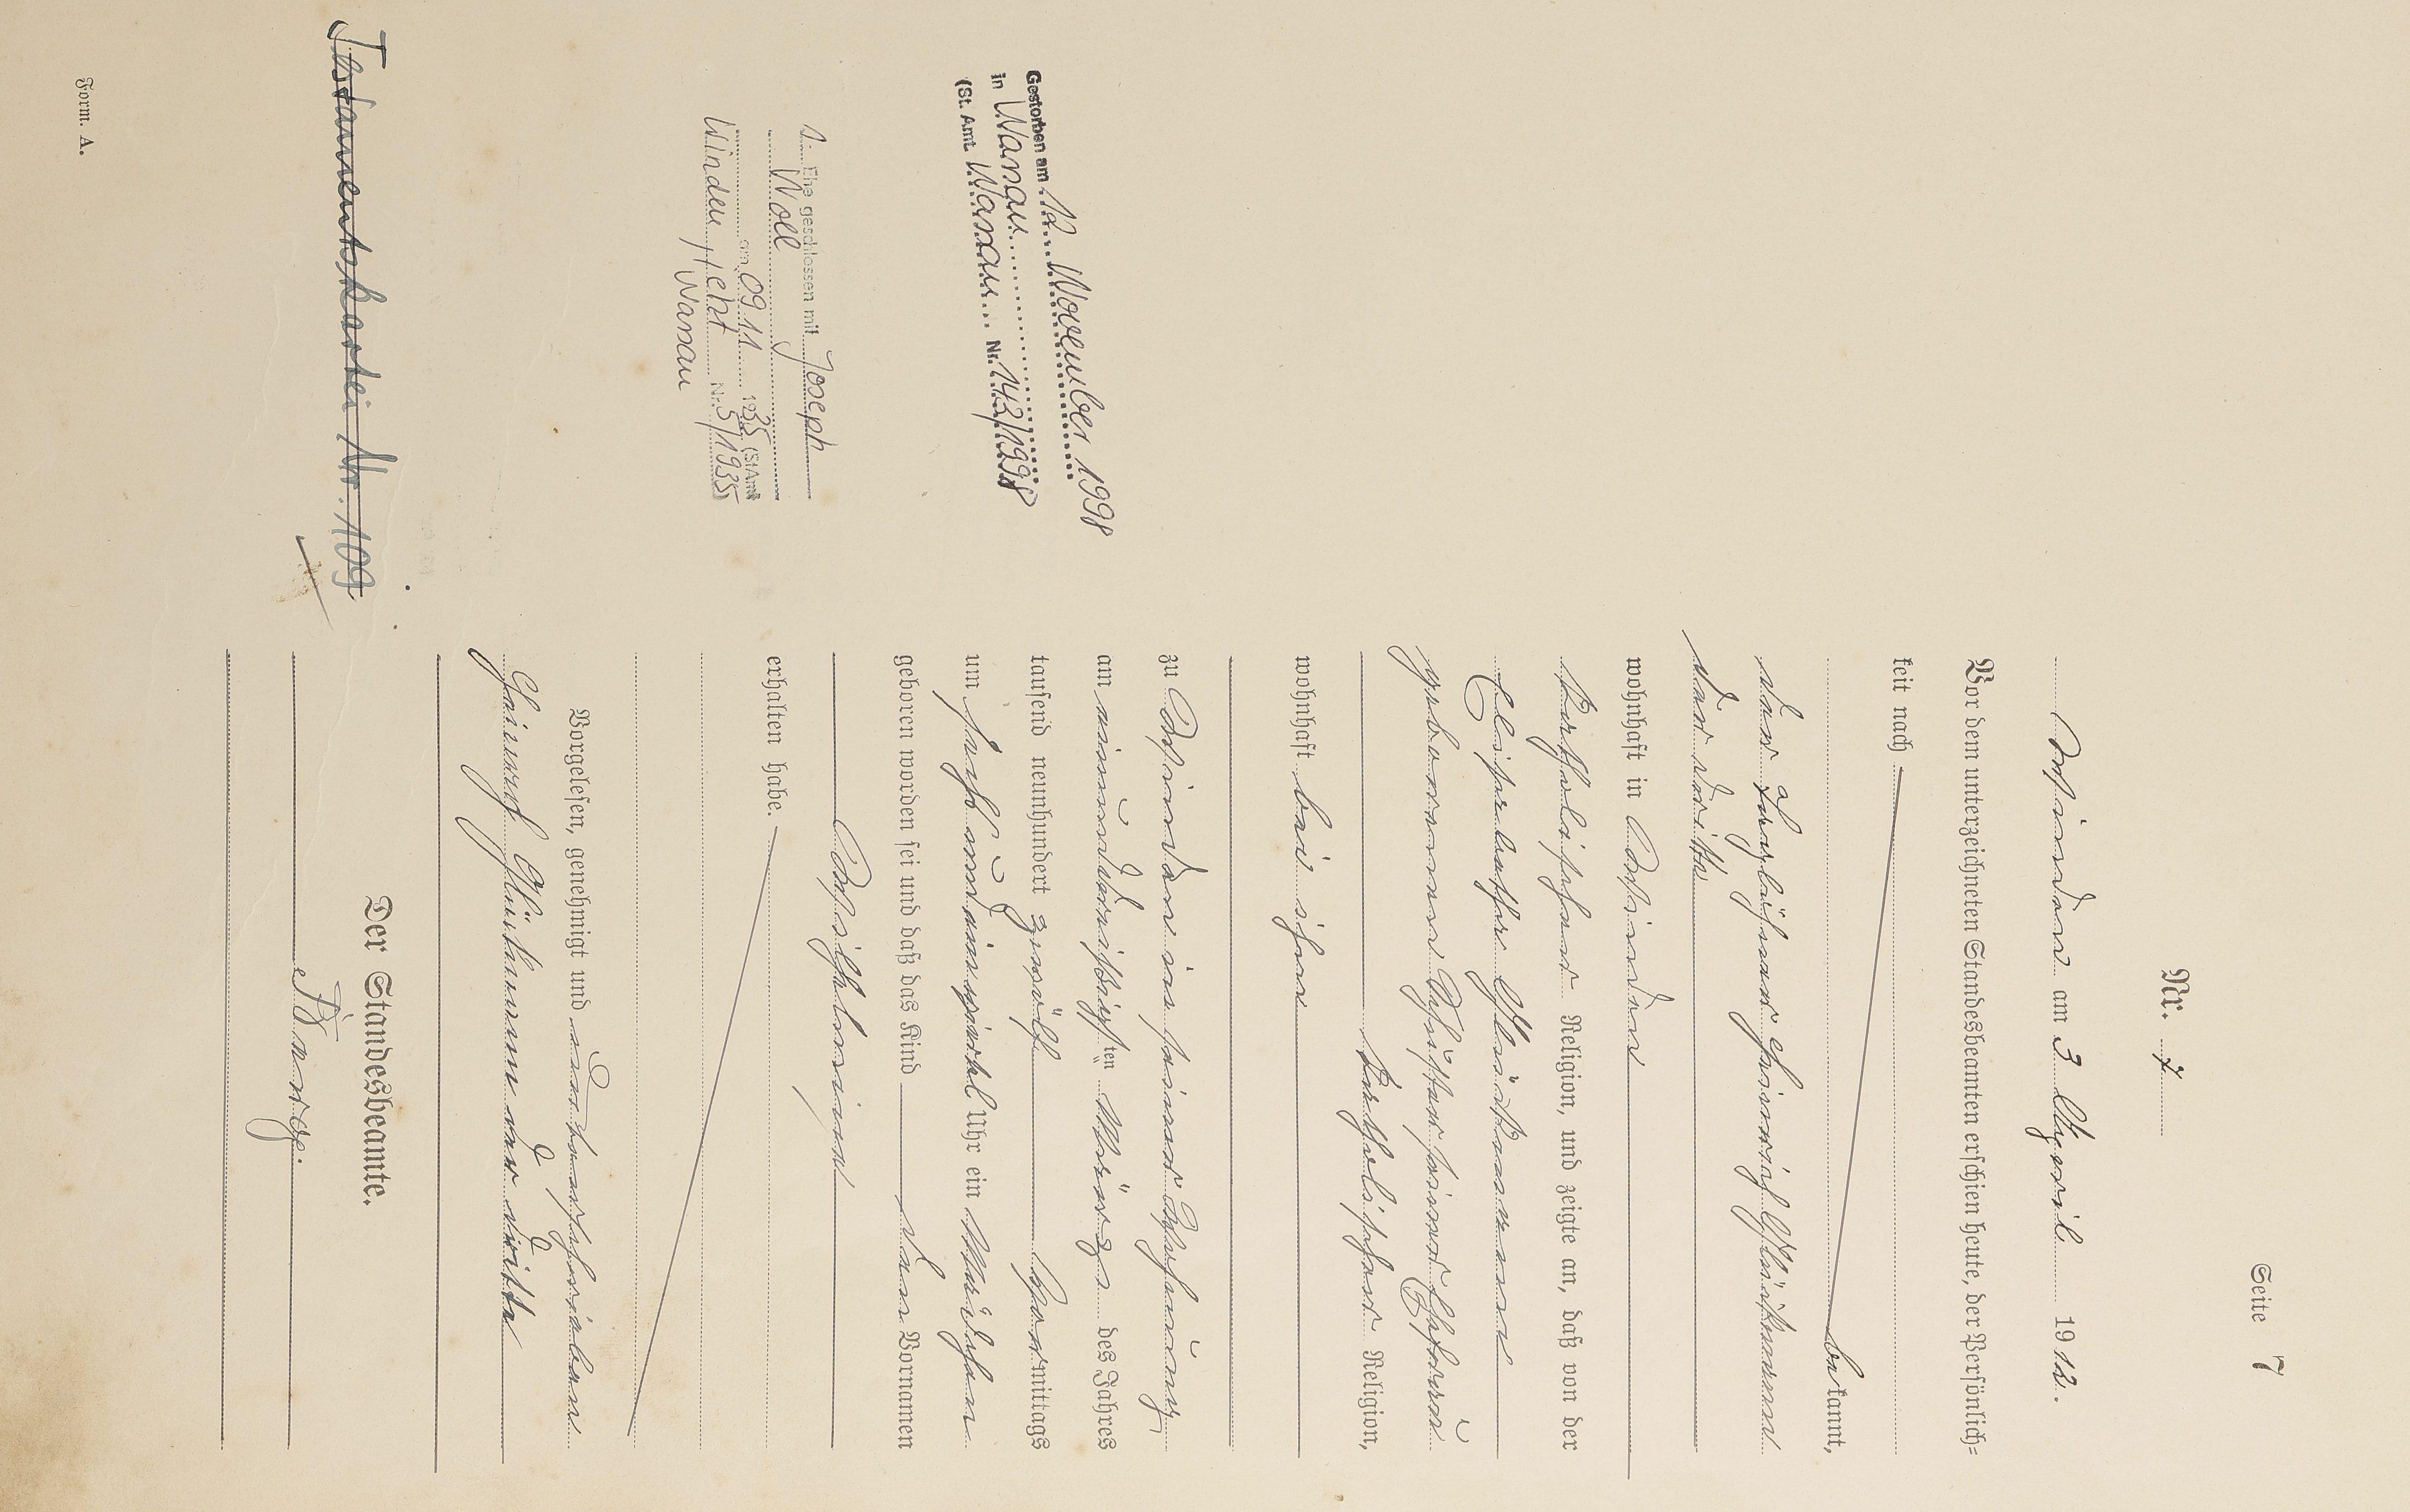 Seite 7
Nr. 7
Winden am 3 April 1912.
Vor dem unterzeichneten Standesbeamten erschien heute, der Persönlich=
keit nach
bekannt,
der Tagelöhner Heinrich Glückmann
der dritte
wohnhaft in Winden
katholischer Religion, und zeigte an, daß von der
Elisabetha Glückmann
geborenen seiner Ehefrau
katholischer Religion,
wohnhaft bei ihm
zu Winden in seiner Wohnung
am einunddreißigsten März des Jahres
tausend neunhundert zwölf Vormittags
um fünf und ein viertel Uhr ein Mädchen
geboren worden sei und daß das Kind den Vornamen
Wilhelmina
erhalten habe.
Vorgelesen, genehmigt und unterschrieben
Heinrich Glückmann der dritte
Der Standesbeamte.
Gestorben am 12. November 1998
in Nassau
(St. Amt Nassau Nr. 143/1998
1. Ehe geschlossen mit Joseph
Noll
am 09.11 1935 (StAmt
Winden jetzt Nr. 5/1935
Nassau
Testamentskartei Nr. 109
Form. A.